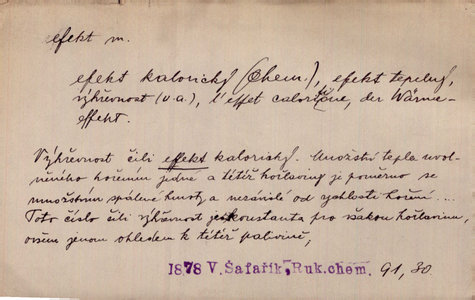 efekt m.
efekt kalorický (Chem.), efekt tepelný,
výhřevnost (v.a.), l'effet calorique, der Wärme-
effekt.
Výhřevnost čili efekt kalorický. Množství tepla uvol-
něného hořením jedné a téтéž hořlaviny je poměrno se
množstvím spálené hmoty a nezávisle od rychlosti hoření ....
Toto číslo čili výhřevnost je konstanta pro každou hořlavinu,
ovšem jenom ohledem k téтéž palivině,
1878 V. Šafařík, Ruk.chem. 91, 30